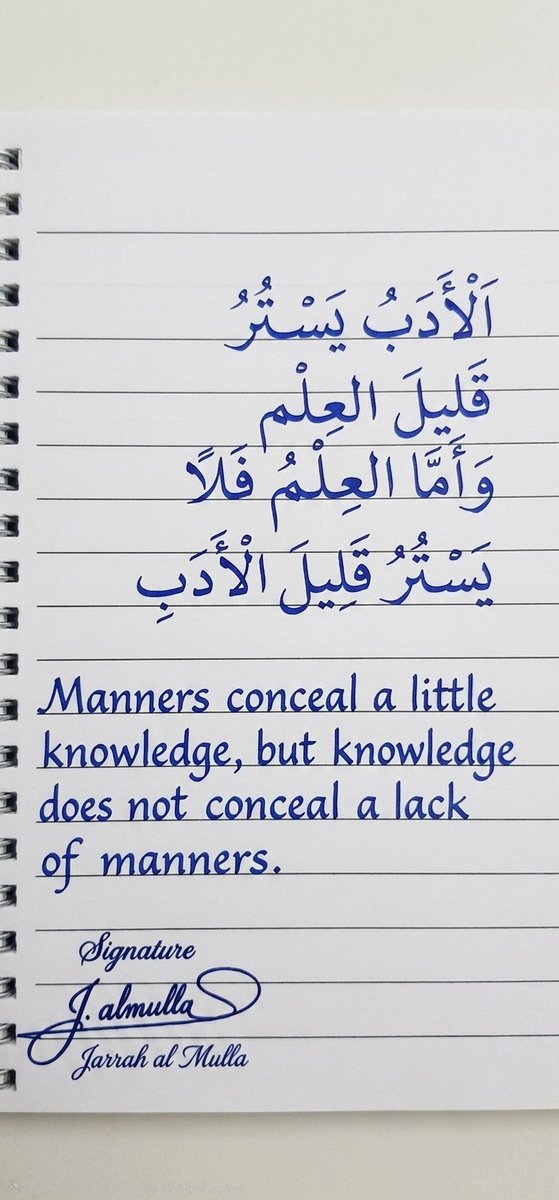 اَلْأَدَبُ يَسْتُرُ
قَليلَ العِلْم
وَأَمَّا العِلْمُ فَلاً
يَسْتُرُ قَلِيلَ الْأَدَبِ
Manners conceal a little
knowledge, but knowledge
does not conceal a lack
of manners.
Signature
J. almulla
Jarrah al Mulla